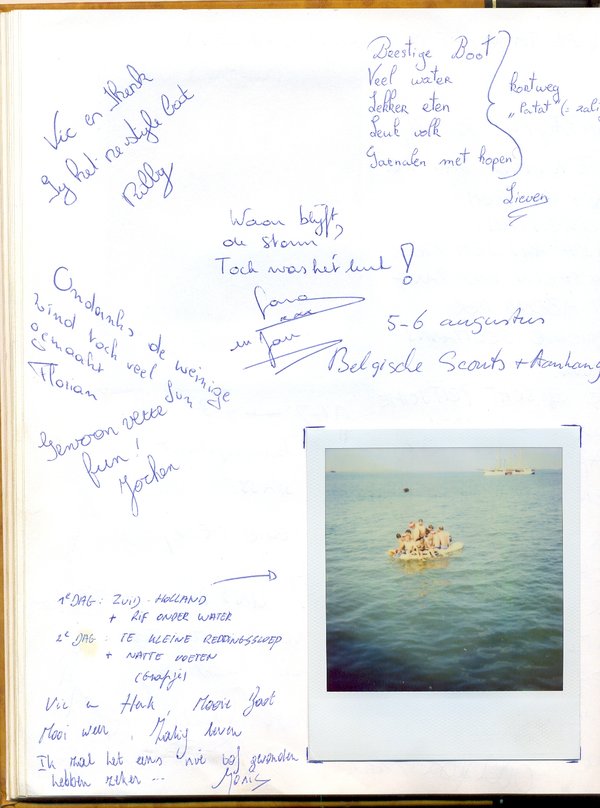 Beestige Boot
Veel water
Lekker eten
Leuk volk
Garnalen met hopen
kortweg
"Patat" (= zalig
Lieven
Vic en Henk
Gij het ne style boot
Waar blijft
de storm,
Toch was het leuk!
Sara
en Jan
5-6 augustus
Belgische Scouts + Aanhang
Ondanks de weinige
wind toch veel fun
gemaakt
Florian
Gewoon vette
fun!
Jochen
1e DAG: ZUID-HOLLAND
+ RIF ONDER WATER
2e DAG: TE KLEINE REDDINGSSLOEP
+ NATTE VOETEN
(Grapje)
Vic en Henk, Mooie Boot
Mooi weer, Zalig leven
Ik zal het eens nie tof gevonden
hebben zeker ...